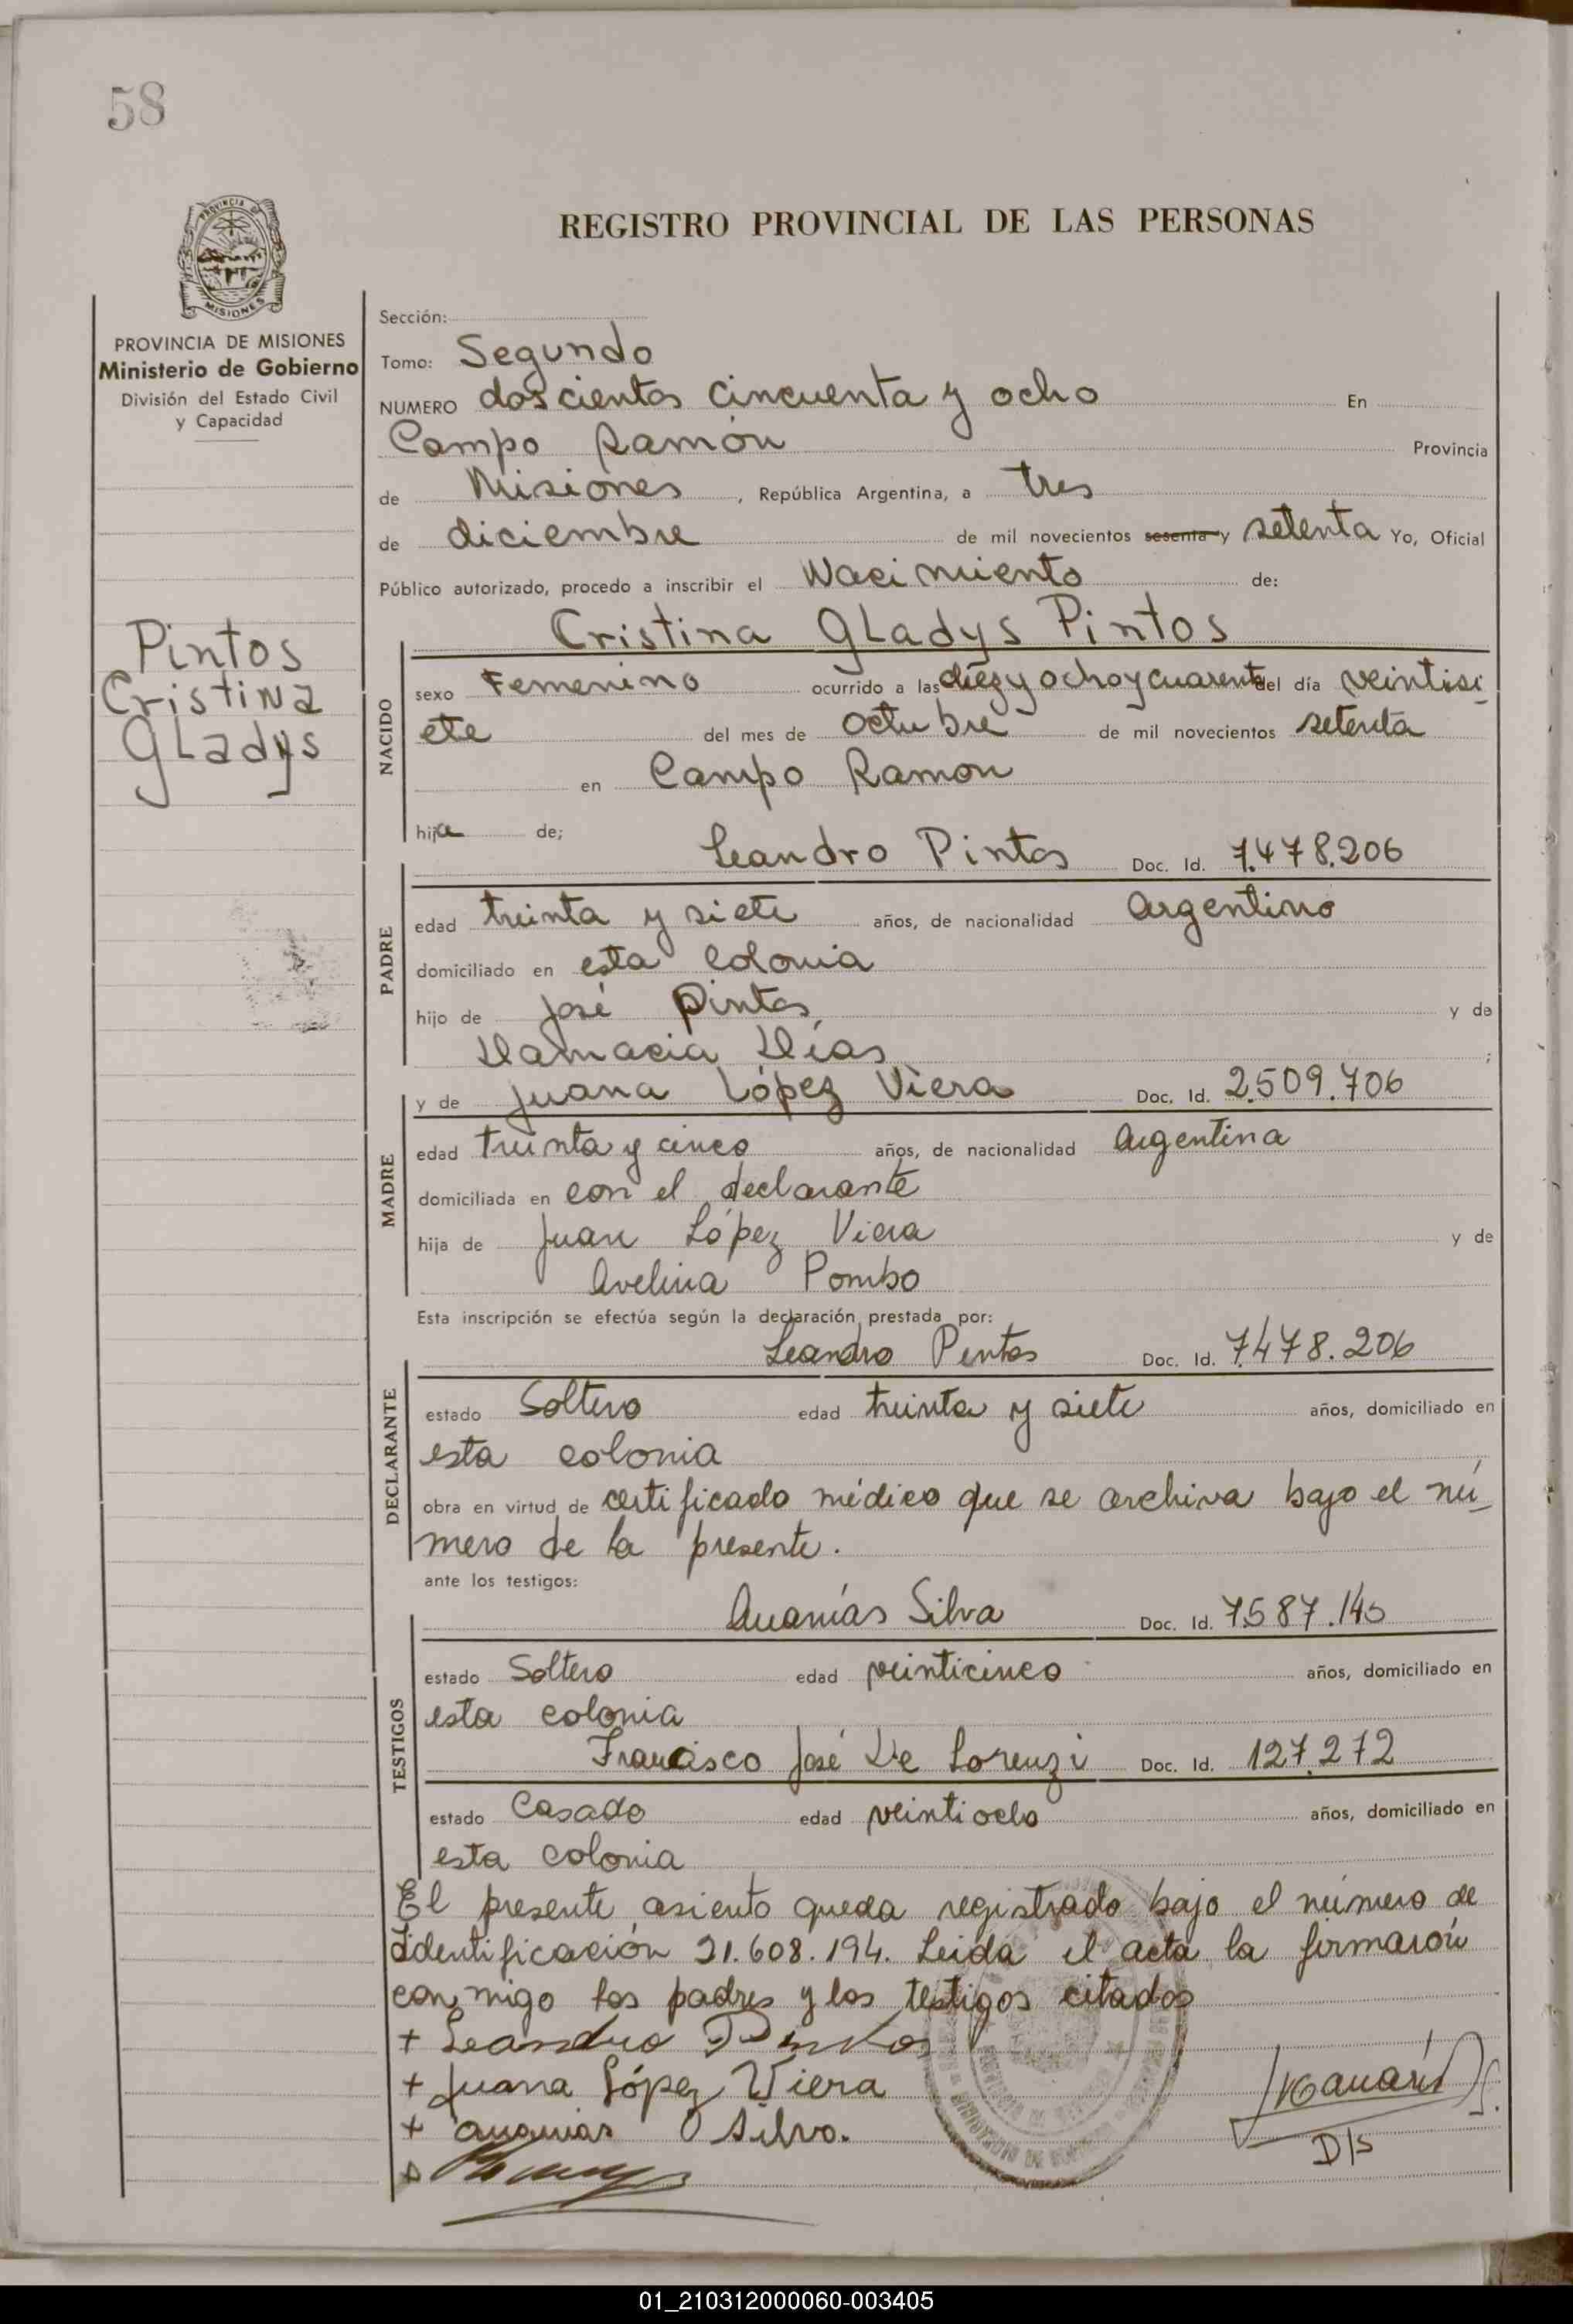 58
REGISTRO PROVINCIAL DE LAS PERSONAS
PROVINCIA DE MISIONES
Ministerio de Gobierno
División del Estado Civil
y Capacidad
Pintos
Cristina
GLadys
Sección:
Tomo: Segundo
NUMERO doscientos cincuenta y ocho En
Campo Ramón Provincia
de Misiones, República Argentina, a tres
de diciembre de mil novecientos sesenta y setenta Yo, Oficial
Público autorizado, procedo a inscribir el Nacimiento de:
Cristina GLadys Pintos
NACIDO
sexo Femenino ocurrido a las diez y ocho y cuarenta del día veintisi
ete del mes de octubre de mil novecientos setenta
en Campo Ramon
hija de;
Leandro Pintos Doc. Id. 7.478.206
PADRE
edad treinta y siete años, de nacionalidad argentino
domiciliado en esta colonia
hijo de José Pintos y de
Damacia Días ;
y de Juana López Viera Doc. Id. 2.509.706
MADRE
edad treinta y cinco años, de nacionalidad argentina
domiciliada en con el declarante
hija de Juan López Viera y de
Avelina Pombo
Esta inscripción se efectúa según la declaración prestada por:
Leandro Pintos Doc. Id. 7.478.206
DECLARANTE
estado Soltero edad treinta y siete años, domiciliado en
esta colonia
obra en virtud de certificado médico que se archiva bajo el nú_
mero de la presente.
ante los testigos:
Ananías Silva Doc. Id. 7.587.145
TESTIGOS
estado Soltero edad veinticinco años, domiciliado en
esta colonia
Francisco José De Lorenzi Doc. Id. 127.272
estado Casado edad veintiocho años, domiciliado en
esta colonia
El presente asiento queda registrado bajo el número de
identificación 21.608.194. Leida el acta la firmarón
conmigo los padres y los testigos citados
+ Leandro Pintos
+ Juana López Viera
+ ananias Silva.
D/S
01_210312000060-003405